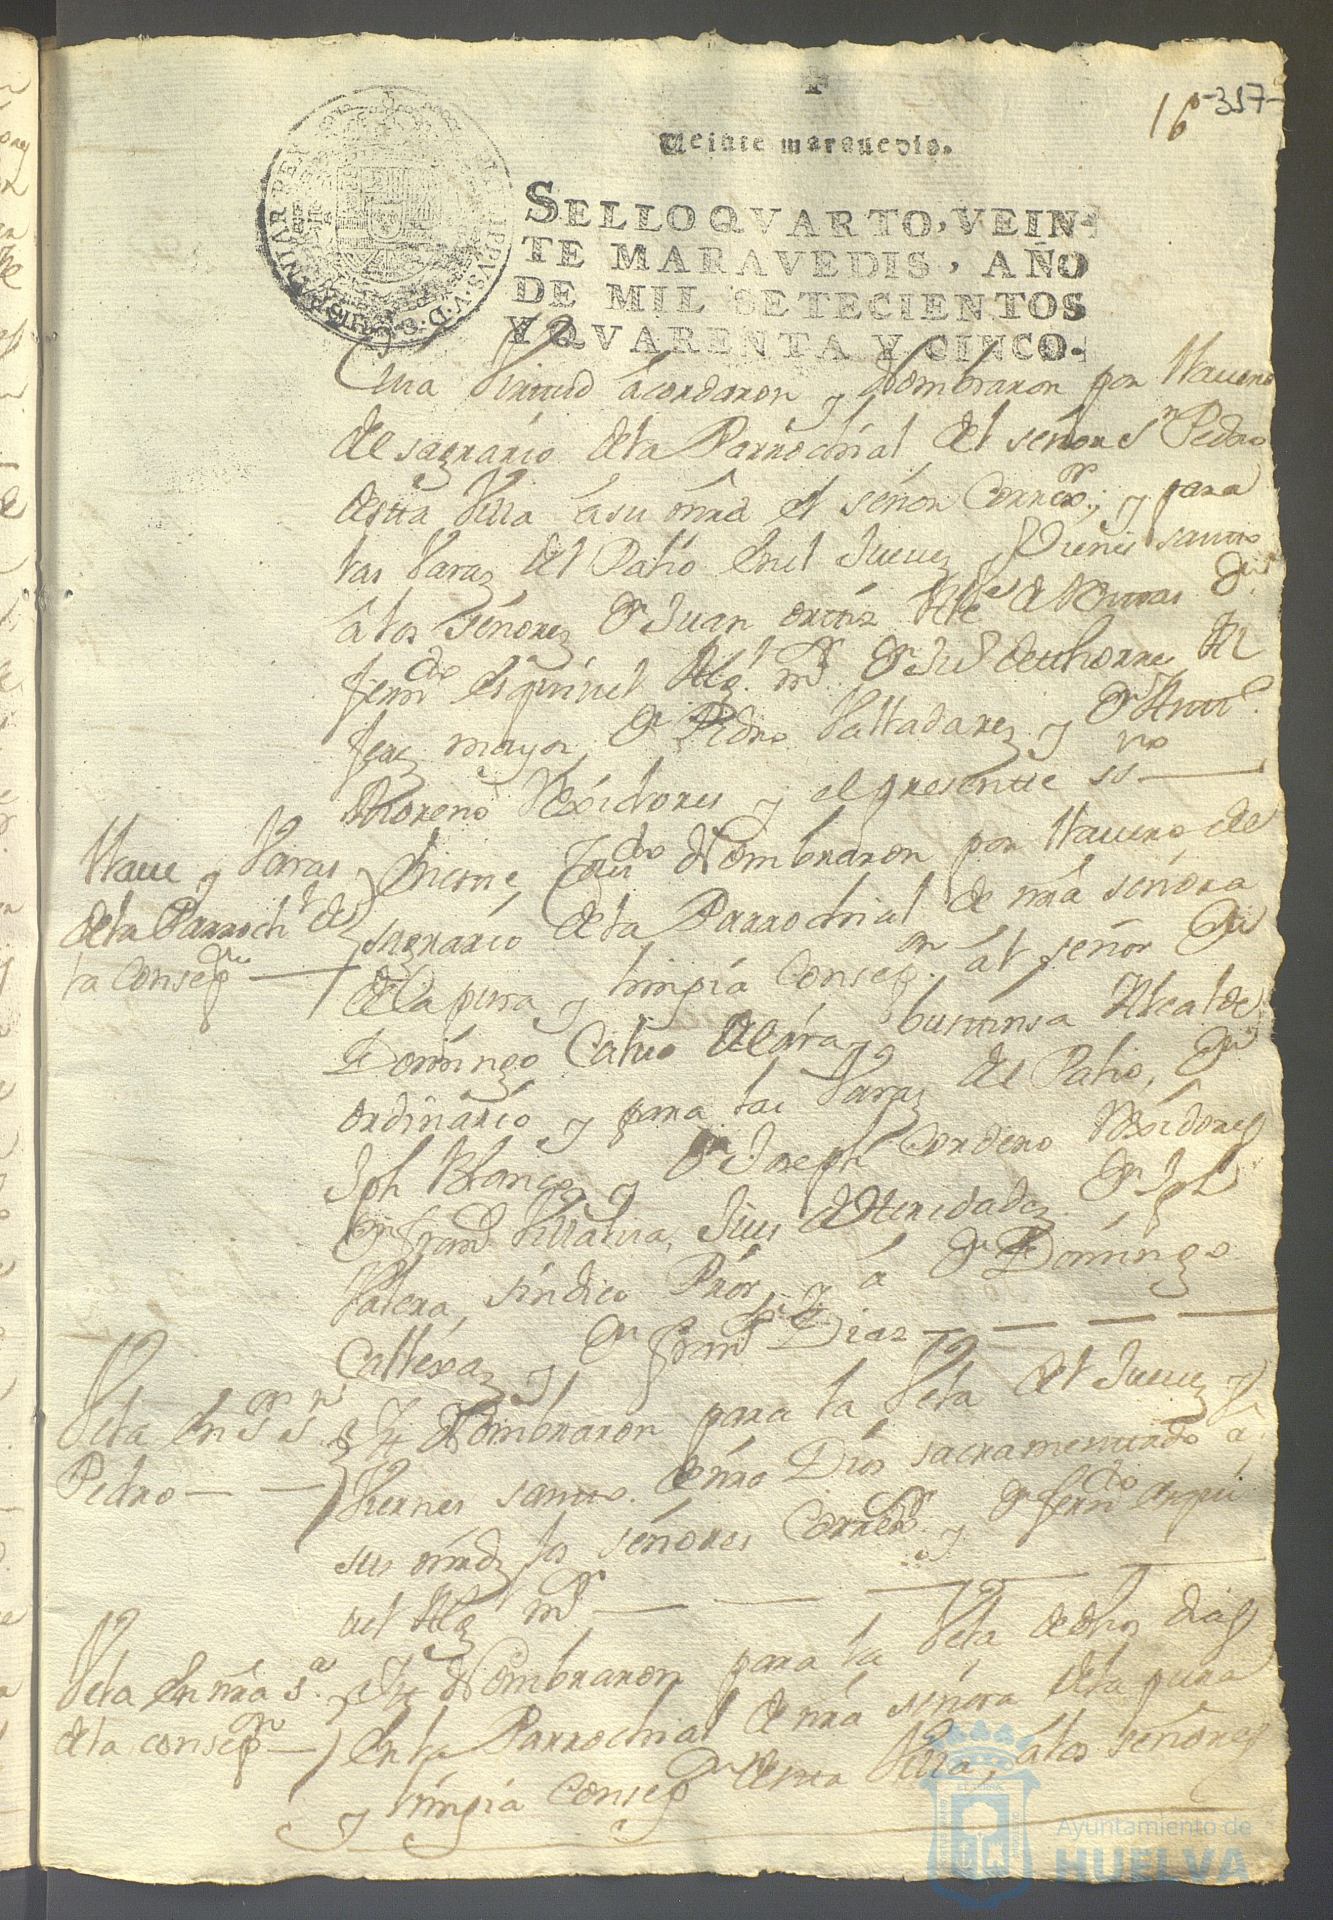 16 -317-
Veinte maravedis.
SELLO QVARTO, VEIN-
TE MARAVEDIS, AÑO
DE MIL SETECIENTOS
Y QVARENTA Y CINCO.
Cuia Virtud acordaron y Nombraron por llavero
del sagrario dela Parrochial del señor Sn Pedro
desta Villa âsu mrd el señor Correxor; y para
las Varas del Patio En el Juevez y Viernes santo
â los señores Dn Juan ortiz Alce de Dn
ferndo Esquivel Algl mor Dn de thorres Al
ferez mayor, Dn Pedro Valladarez y Dn Antto
Moreno Rexidores y el presente ssno
Llave y Varas
dela Parrochl de
la Consepn
Eneste Cavdo Nombraron por llavero de
sagrario dela Parrochial de nra señora
dela pura y limpia Consepn al señor Dn
Domingo Calvo bustinsa Alcalde
ordinario y para las Varas del Patio, Dn
Jph Blanco y Dn Joseph Cordero Rexidores
Dn Villalva, Dn Jph
Valera, sindico Pror y â Dn Domingo
y Dn Diaz
Vela En Sr Sn
Pedro
Yt Nombraron para la Vela del Juevez y
Viernes santo de nro Dios sacramentado â
sus mrdz los señores Correxor y Dn ferndo Esqui
vel Algl mor
Vela En nra sa
dela consepn
Yt Nombraron para la Vela, de dhos dias
En la Parrochial de nra señora dela pura
y limpia Consepn desta Villa, âlos señores
Ayuntamiento de
HUELVA